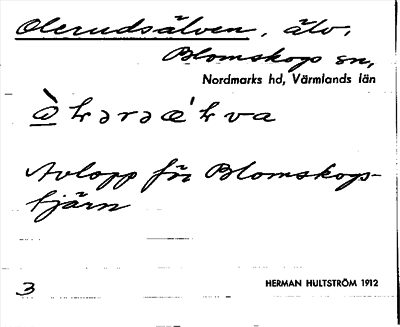 Olerudsälven, älv,
Blomskogs sn,
Nordmarks hd, Värmlands län
Avlopp för Blomskogs-
tjärn
3
HERMAN HULTSTRÖM 1912